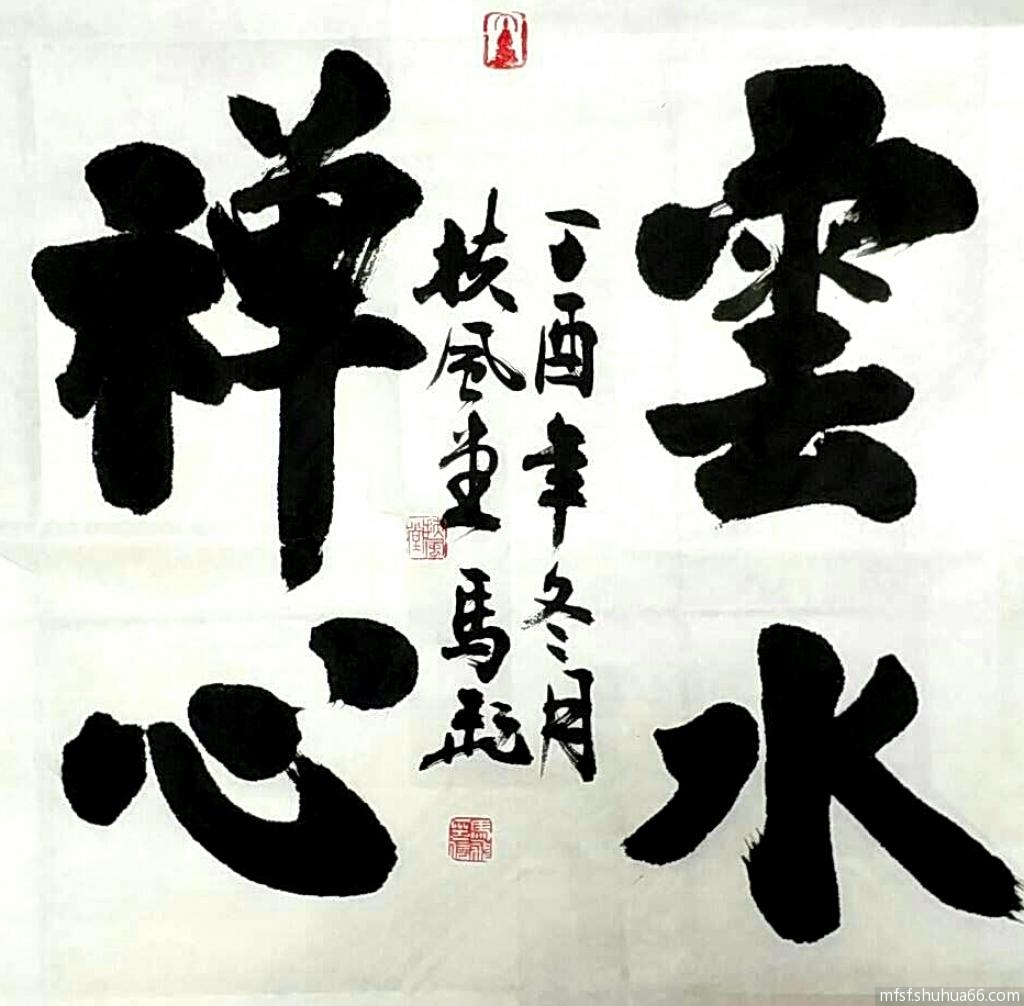 雲水
禅心
丁酉年冬月
扶風堂 馬
mfsf.shuhua66.com